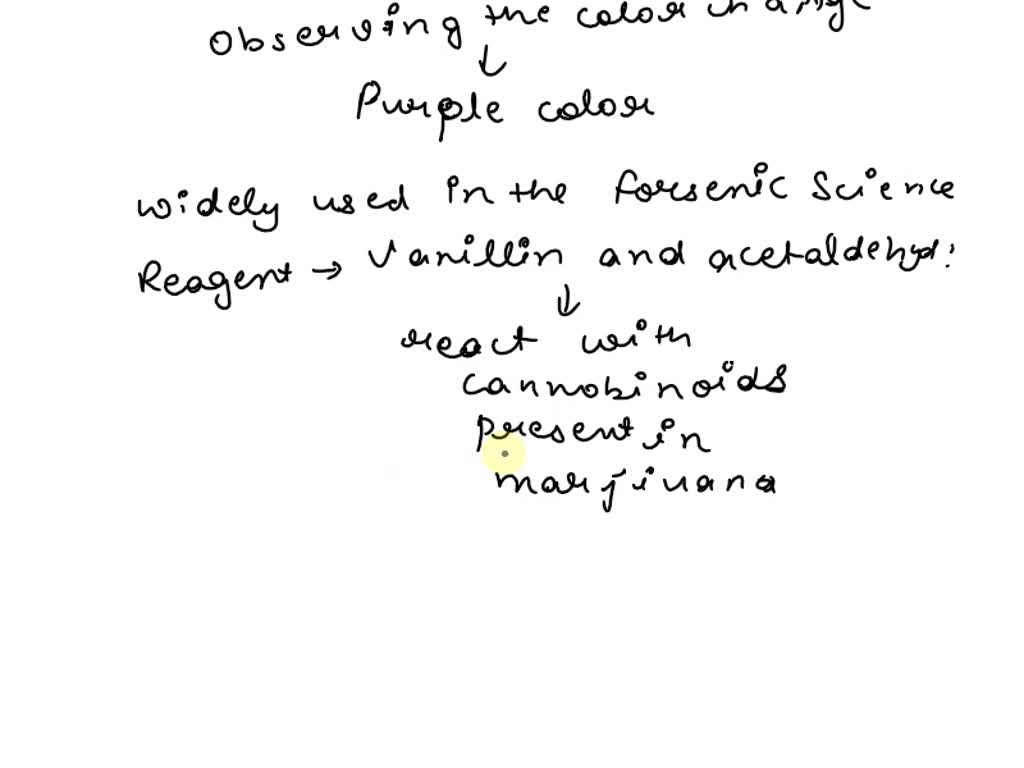 Observing the color change
↓
Purple color
widely used in the forsenic Science
Reagent → Vanillin and acetaldehyd
↓
react with
cannobinoids
present in
marjiuana